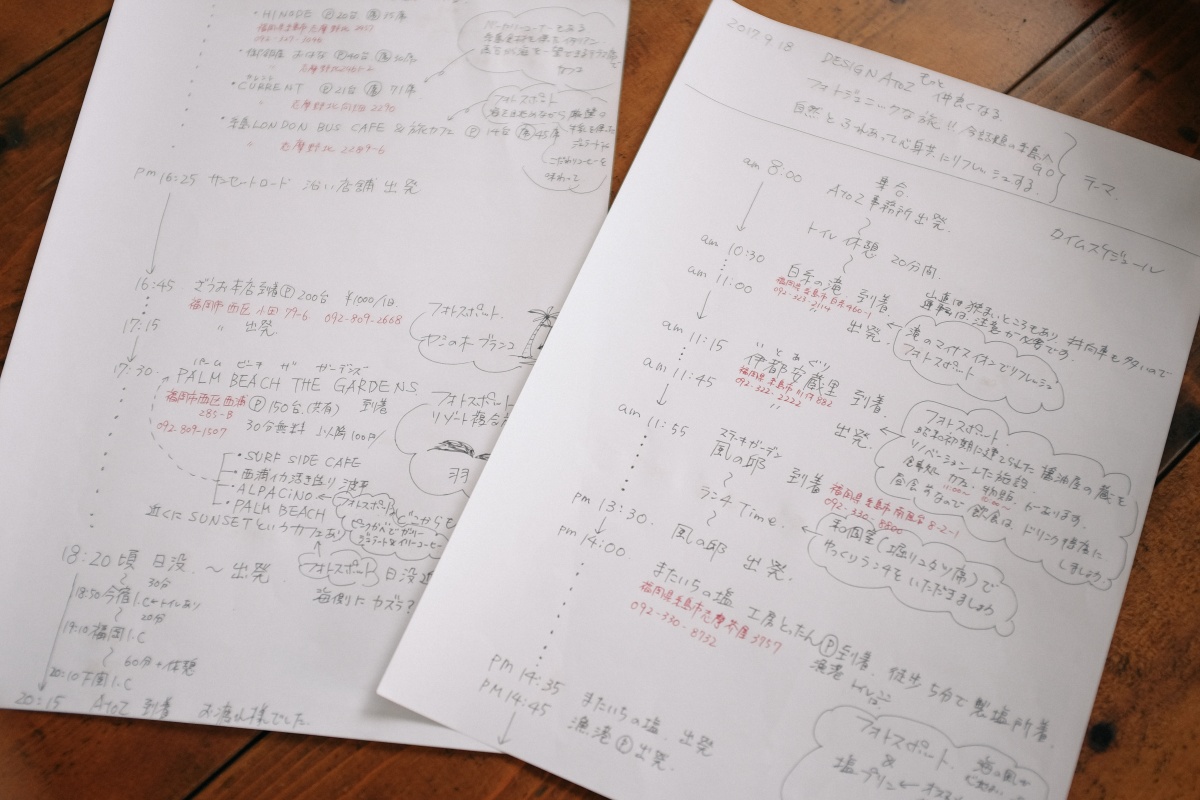 2017 9.18
DESIGN AToZ もっと 仲良くなる
フォトジェニックな旅!! 今話題の糸島へGO
自然とふれあって心身共にリフレッシュする。
テーマ
タイムスケジュール
am 8:00 集合
AToZ 事務所出発
トイレ休憩 20分間
am 10:30 白糸の滝 到着
福岡県糸島市白糸460-1
092-323-2114
山道は狭いところもあり、対向車も多いので
運転は注意が必要です
am 11:00 〃 出発
滝のマイナスイオンでリフレッシュ
フォトスポット
いとあぐり
am 11:15 伊都安蔵里 到着
福岡県糸島市川付882
092-322-2222
am 11:45 〃 出発
フォトスポット
昭和初期に建てられた醤油屋の蔵を
リノベーションした施設
食事処 カフェ 物販 があります。
会食前なので飲食は、ドリンク程度に
しましょう
ステーキガーデン
am 11:55 風の邸 到着
福岡県糸島市南風台8-2-1
092-330-8800
ランチ Time.
和個室(堀リュタツ席)で
ゆっくりランチをいただきましょう
pm 13:30. 風の邸 出発.
pm 14:00 またいちの塩 工房とったん Ⓟ到着. 徒歩5分で製塩所着.
福岡県糸島市志摩芥屋3757
092-330-8732
漁港
pm 14:35 またいちの塩. 出発
pm 14:45 漁港Ⓟ出発.
フォトスポット
&
塩プリン
・HINODE Ⓟ20台
・CURRENT Ⓟ21台 71席
カレント
志摩野北向畑2290
フォトスポット
・糸島LONDON BUS CAFE & 旅カフェ Ⓟ14台 45席
志摩野北2289-6
こだわりコーヒーを
味わって
pm 16:25 サンセットロード 沿い店舗 出発
16:45 ざうお本店到着Ⓟ200台 ¥1000/1日
福岡市西区小田79-6 092-809-2668
17:15 〃 出発
フォトスポット.
ヤシの木ブランコ
パーム ビーチ ザ ガーデンズ
17:30 PALM BEACH THE GARDENS
福岡市西区西浦
285-8
092-809-1507
Ⓟ150台(共有) 到着
30分無料 以降100円/
フォトスポット
リゾート複合
羽
・SURF SIDE CAFE
・西浦イカ活き造り
・ALPACINO
・PALM BEACH
近くにSUNSETというカフェあり
フォトスポット
18:20頃 日没 ～ 出発
フォトスポット 日没
30分
18:50 今宿I.C ←トイレあり
20分
19:10 福岡I.C
60分+休憩
20:10 下関I.C
20:15 AToZ 到着 お疲れ様でした.